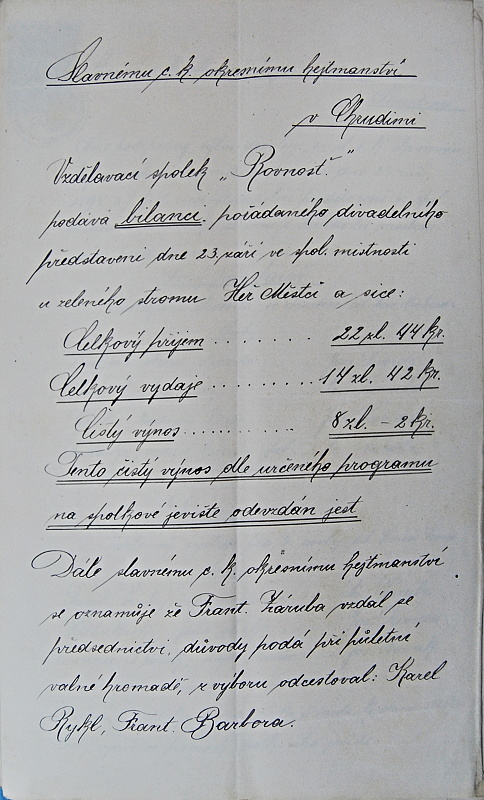 Slavnému c. k. okresnímu hejtmanství
v Chrudimi
Vzdělavací spolek „Rovnosť."
podává bilanci pořádaného divadelního
představeni dne 23. září ve spol. místnosti
u zeleného stromu Heř Městci a sice:
Celkový příjem ........ 22 zl. 44 kr.
Celkový vydaje ........ 14 zl. 42 kr.
Čistý výnos ........... 8 zl. - 2 kr.
Tento čistý výnos dle určeného programu
na spolkové jeviště odevzdán jest
Dále slavnému c. k. okresnímu hejtmanství
se oznamuje že Frant. Záruba vzdál se
předsednictvi, důvody podá při půletní
valné hromadě, z výboru odcestoval: Karel
Rykl, Frant. Barbora.